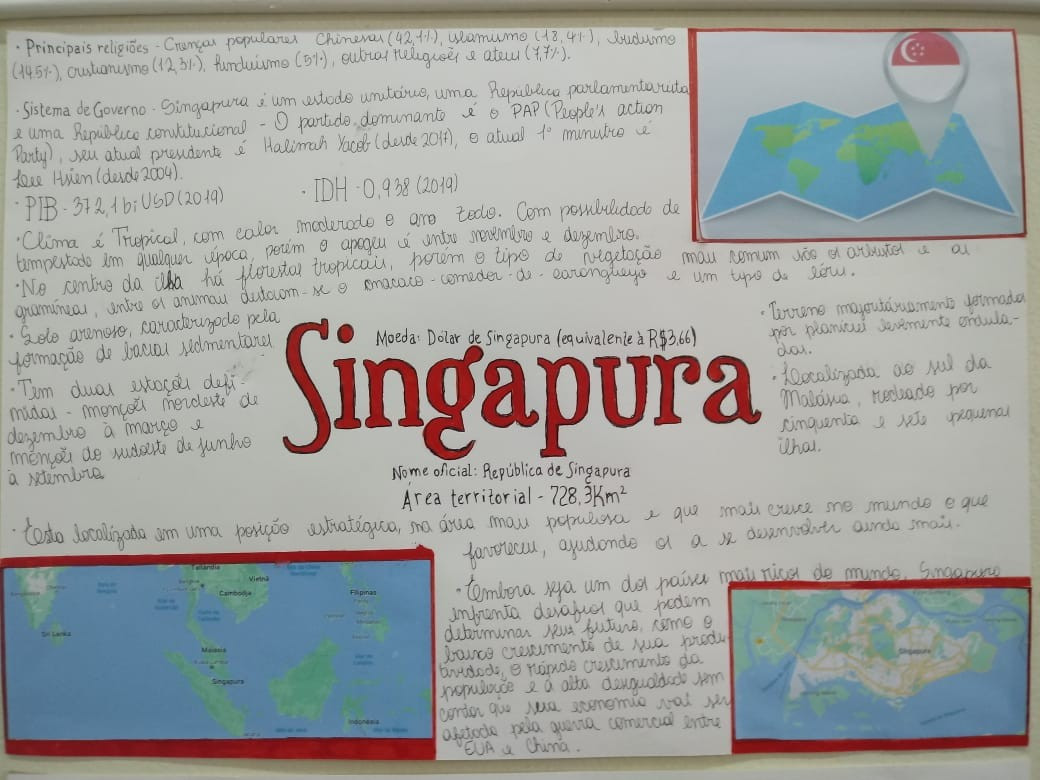 · Principais religiões - Crenças populares Chinesas (42,1%), islamismo (18,4%), budismo
(14,5%), cristianismo (12,3%), hinduísmo (5%), outras religiões e ateu (7,7%).
· Sistema de Governo - Singapura é um estado unitário, uma República parlamentarista
e uma República constitucional - O partido dominante é o PAP (People's action
Party), seu atual presidente é Halimah Yacob (desde 2017), o atual 1º ministro é
Lee Hsien (desde 2004).
· PIB - 372,1 bi USD (2019)
· IDH - 0,938 (2019)
· Clima é Tropical, com calor moderado o ano todo. Com possibilidade de
tempestade em qualquer época, porém o apogeu é entre novembro e dezembro.
· No centro da ilha há florestas tropicais, porém o tipo de vegetação mais comum são os arbustos e as
gramíneas, entre os animais destacam-se o macaco-comedor-de-caranguejo e um tipo de lóris.
· Solo arenoso, caracterizado pela
formação de bacias sedimentares
· Tem duas estações defi-
nidas - monções nordeste de
dezembro à março e
monções do sudoeste de junho
à setembro
Moeda: Dólar de Singapura (equivalente à R$3,66)
Singapura
Nome oficial: República de Singapura
Área territorial - 728,3Km²
· Terreno majoritáriamente formado
por planícies levemente ondula-
das.
· Localizada ao sul da
Malásia, rodeado por
cinquenta e sete pequenas
ilhas.
· Esta localizada em uma posição estratégica, na área mais populosa e que mais cresce no mundo o que
favoreceu, ajudando os a se desenvolver ainda mais.
· Embora seja um dos países mais ricos do mundo, Singapura
enfrenta desafios que podem
determinar seu futuro, como o
baixo crescimento de sua produ-
tividade, o rápido crescimento da
população e à alta desigualdade sem
contar que sua economia vai ser
afetada pela guerra comercial entre
EUA e China.
Tailândia
Vietnã
Camboja
Filipinas
Sri Lanka
Malásia
Kuala Lumpur
Singapura
Indonésia
Singapura